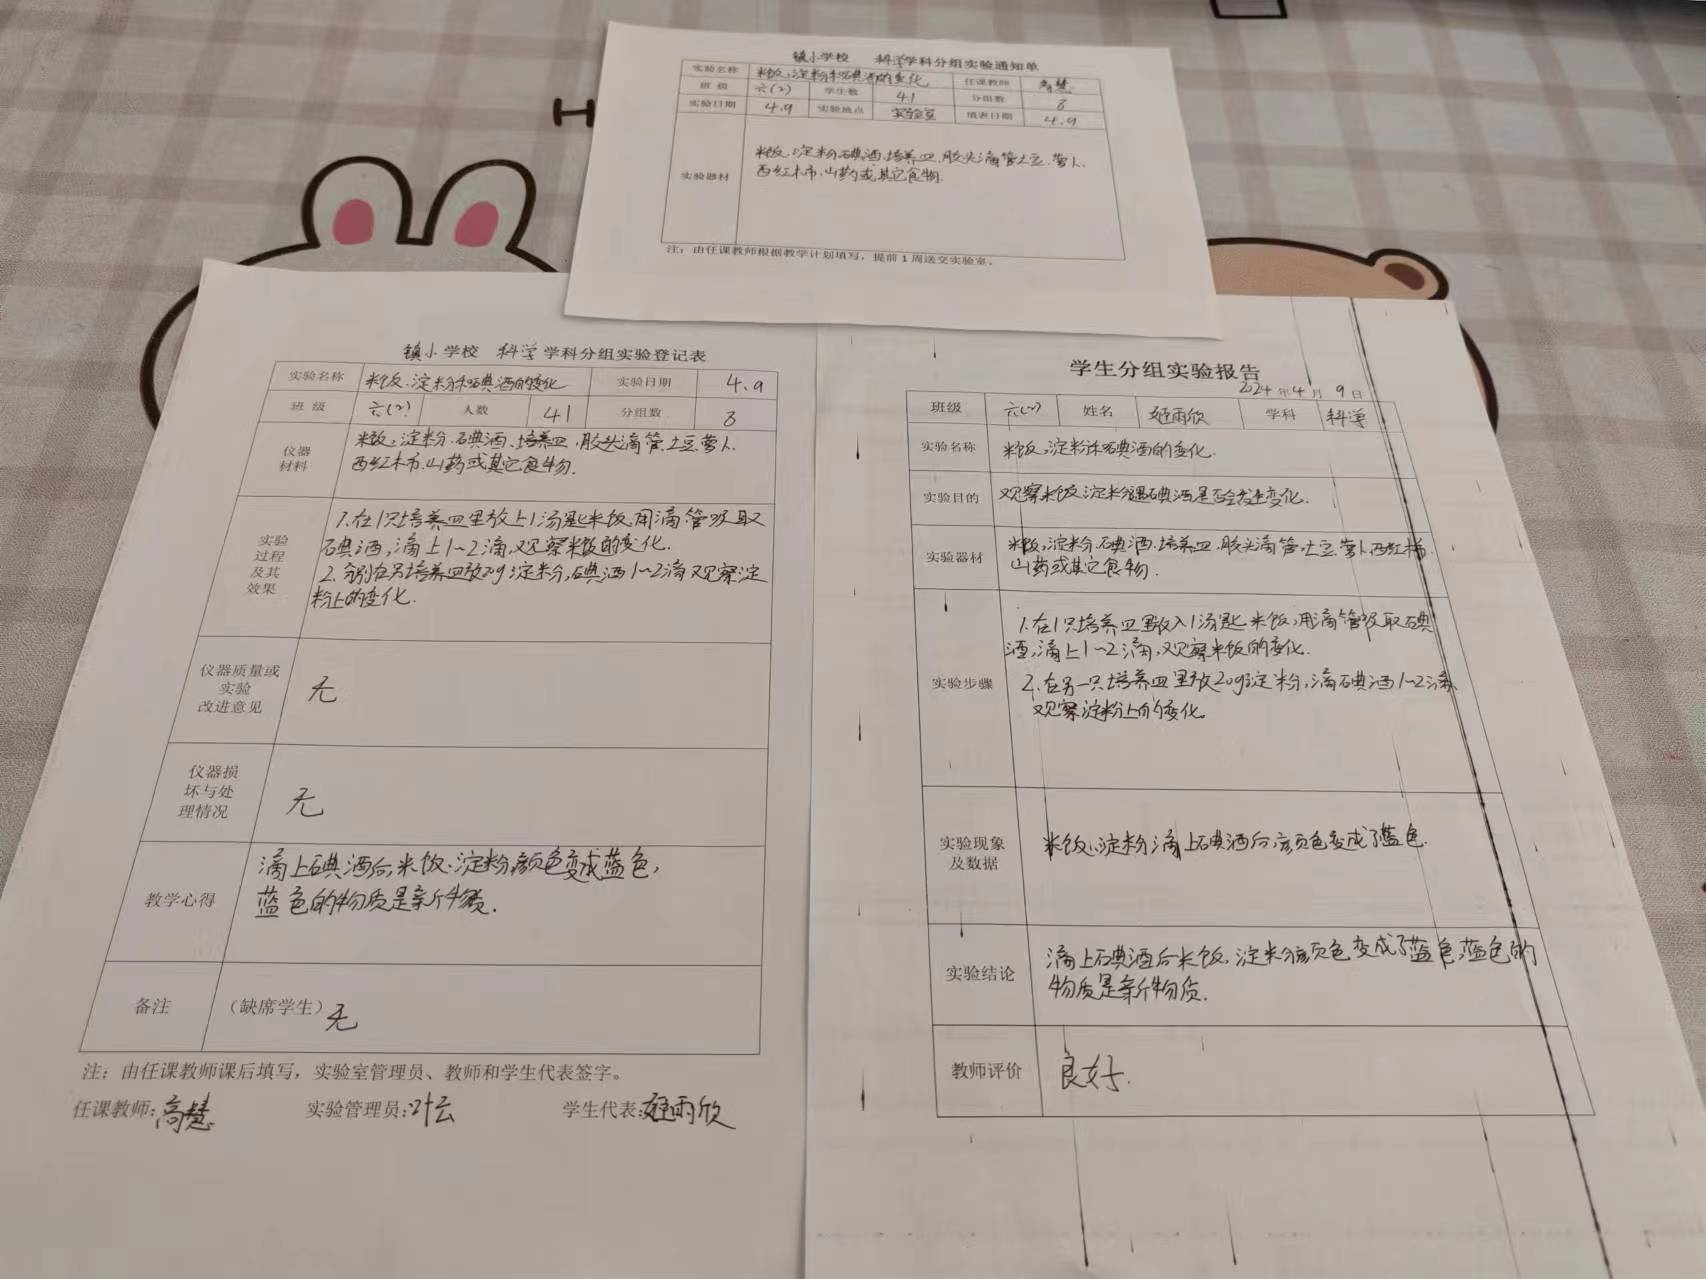 镇小学校 科学学科分组实验通知单
实验名称 米饭、淀粉和碘酒的变化 任课教师 高慧
班级 六(2) 学生数 41 分组数 8
实验日期 4.9 实验地点 实验室 填表日期 4.9
实验器材
米饭、淀粉、碘酒、培养皿、胶头滴管、土豆、萝卜、
西红柿、山药或其它食物.
注：由任课教师根据教学计划填写，提前1周送交实验室。
镇小学校 科学学科分组实验登记表
实验名称 米饭、淀粉和碘酒的变化 实验日期 4.9
班级 六(2) 人数 41 分组数 8
仪器
材料
米饭、淀粉、碘酒、培养皿、胶头滴管、土豆、萝卜、
西红柿、山药或其它食物.
实验
过程
及其
效果
1.在1只培养皿里放上1汤匙米饭,用滴管吸取
碘酒,滴上1~2滴,观察米饭的变化.
2.分别在另培养皿放20g淀粉,碘酒1~2滴观察淀
粉上的变化.
仪器质量或
实验
改进意见
无
仪器损
坏与处
理情况
无
教学心得
滴上碘酒后,米饭、淀粉颜色变成蓝色,
蓝色的物质是新物质.
备注 （缺席学生）无
注：由任课教师课后填写，实验室管理员、教师和学生代表签字。
任课教师：高慧 实验管理员：叶云 学生代表：雨欣
学生分组实验报告
2024年4月9日
班级 六(2) 姓名 雨欣 学科 科学
实验名称 米饭、淀粉和碘酒的变化.
实验目的 观察米饭、淀粉遇碘酒是否会发生变化.
实验器材
米饭、淀粉、碘酒、培养皿、胶头滴管、土豆、萝卜、西红柿、
山药或其它食物.
实验步骤
1.在1只培养皿里放入1汤匙米饭,用滴管吸取碘
酒,滴上1~2滴,观察米饭的变化.
2.在另一只培养皿里放20g淀粉,滴碘酒1~2滴,
观察淀粉上的变化。
实验现象
及数据
米饭、淀粉滴上碘酒后,颜色变成了蓝色.
实验结论
滴上碘酒后米饭、淀粉颜色变成了蓝色,蓝色的
物质是新物质.
教师评价 良好.